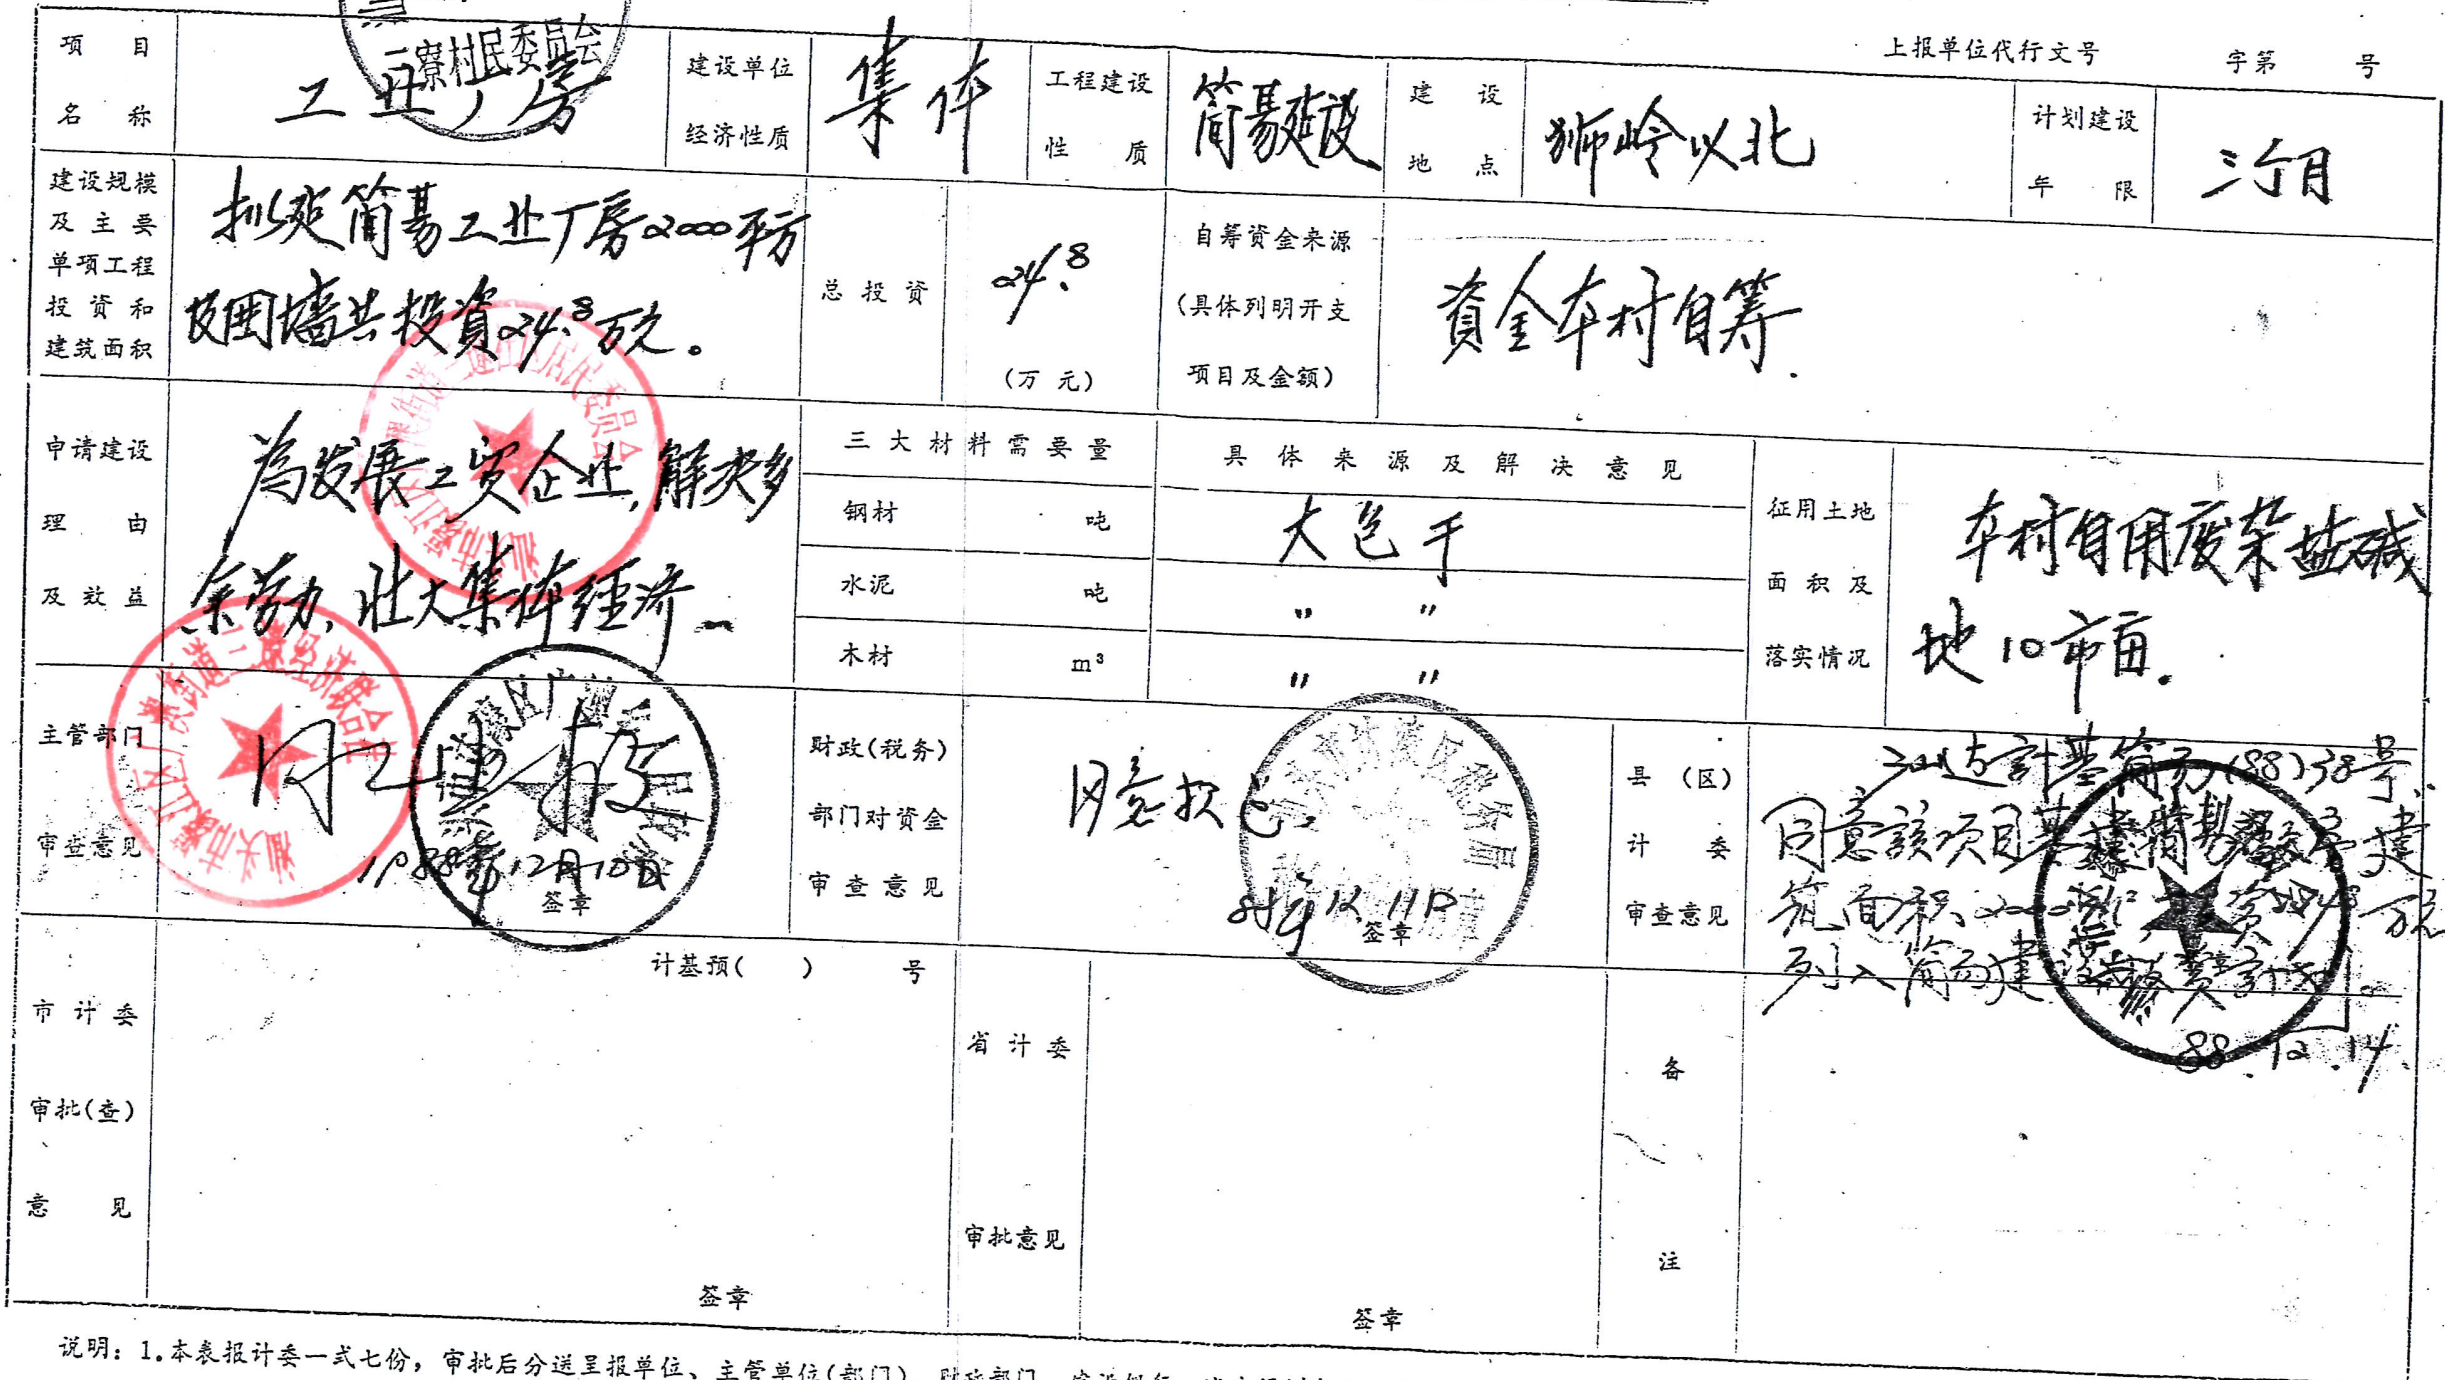 三寮村民委员会
上报单位代行文号 字第 号
项目名称
工业厂房
建设单位经济性质
集体
工程建设性质
简易建设
建设地点
狮岭以北
计划建设年限
三个月
建设规模
及主要
单项工程
投资和
建筑面积
拟建简易工业厂房2000平方
及围墙共投資24.8万元。
总投资
24.8
(万元)
自筹资金来源
(具体列明开支
项目及金额)
資金本村自筹.
申请建设
理由
及效益
為发展工贸企业,解决多
余劳力,壮大集体经济
三大材料需要量
具体来源及解决意见
钢材 吨
大包干
水泥 吨
〃 〃
木材 m³
〃 〃
征用土地
面积及
落实情况
本村自用废杂盐碱
地10市亩.
主管部门
审查意见
1988年12月10日
签章
财政(税务)
部门对资金
审查意见
同意
12.11日
签章
县(区)
计委
审查意见
計基簡字(88)38号.
同意該项目
建
筑面积2000
万元
列入簡易建
88.12.14.
市计委
审批(查)
意见
计基预( ) 号
签章
省计委
审批意见
签章
备
注
说明:1.本表报计委一式七份,审批后分送呈报单位、主管单位(部门)